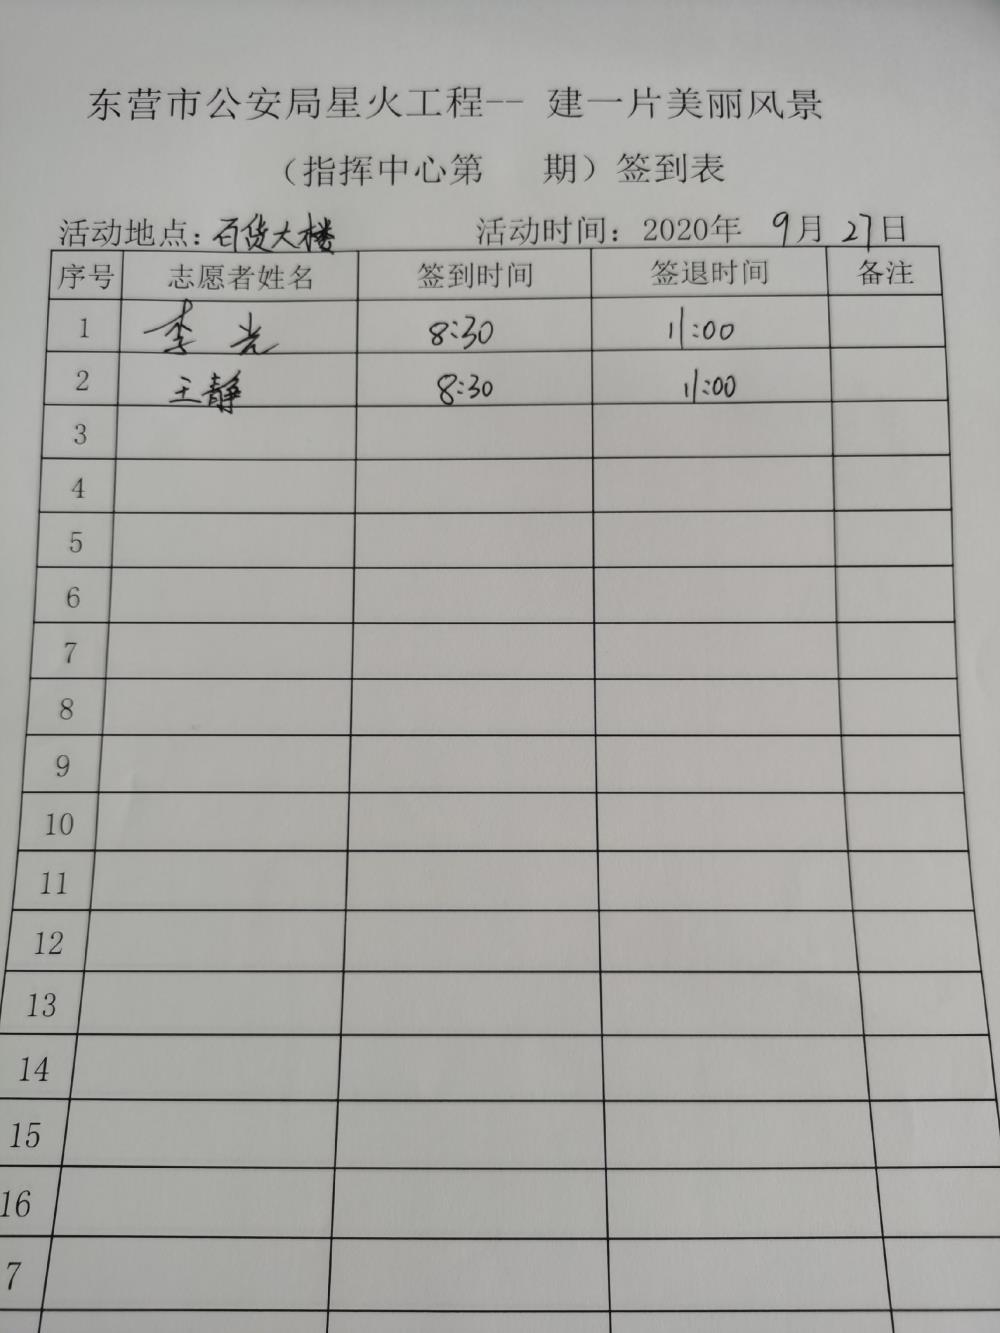 东营市公安局星火工程-- 建一片美丽风景
（指挥中心第 期）签到表
活动地点：百货大楼 活动时间：2020年 9月 27日
序号 志愿者姓名 签到时间 签退时间 备注
1 李光 8:30 11:00
2 王静 8:30 11:00
3
4
5
6
7
8
9
10
11
12
13
14
15
16
7